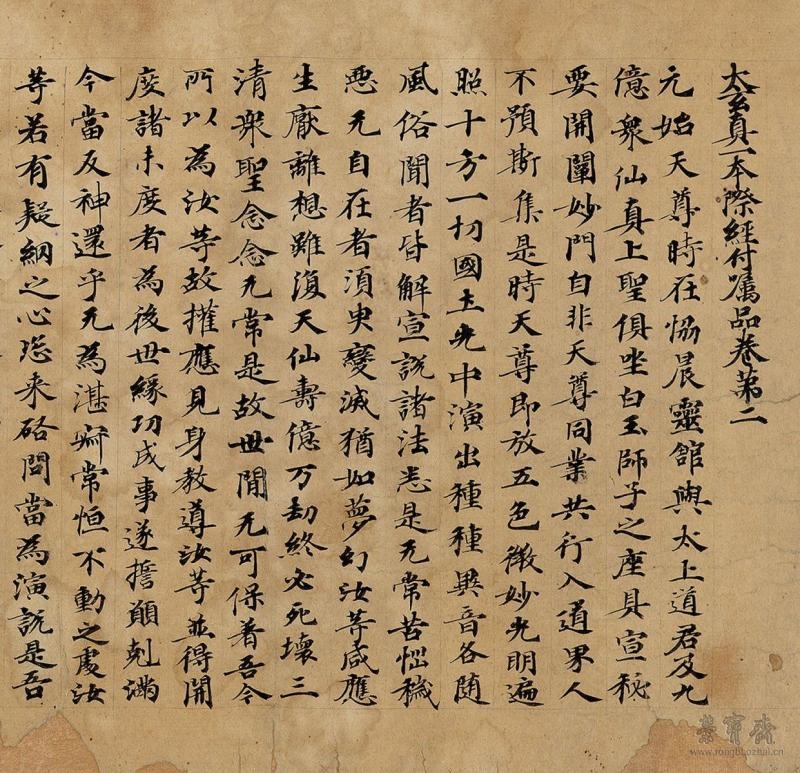 太玄真一本際經付嘱品卷第二
元始天尊時在協晨靈舘與太上道君及九
億衆仙真上聖俱坐白玉師子之座具宣秘
要開闡妙門自非天尊同業共行入道界人
不預斯集是時天尊即放五色微妙光明遍
照十方一切國土光中演出種種異音各随
風俗聞者皆解宣說諸法悉是无常苦惱穢
惡无自在者須臾變滅猶如夢幻汝等咸應
生厭離想雖復天仙壽億万劫終必死壞三
清衆聖念念无常是故世間无可保着吾今
所以為汝等故權應見身教導汝等並得開
度諸未度者為後世緣功成事遂擔願剋満
今當反神還乎无為湛寂常恒不動之處汝
等若有疑網之心恣来諮問當為演說是吾
榮寶齋
www.rongbaozhai.cn